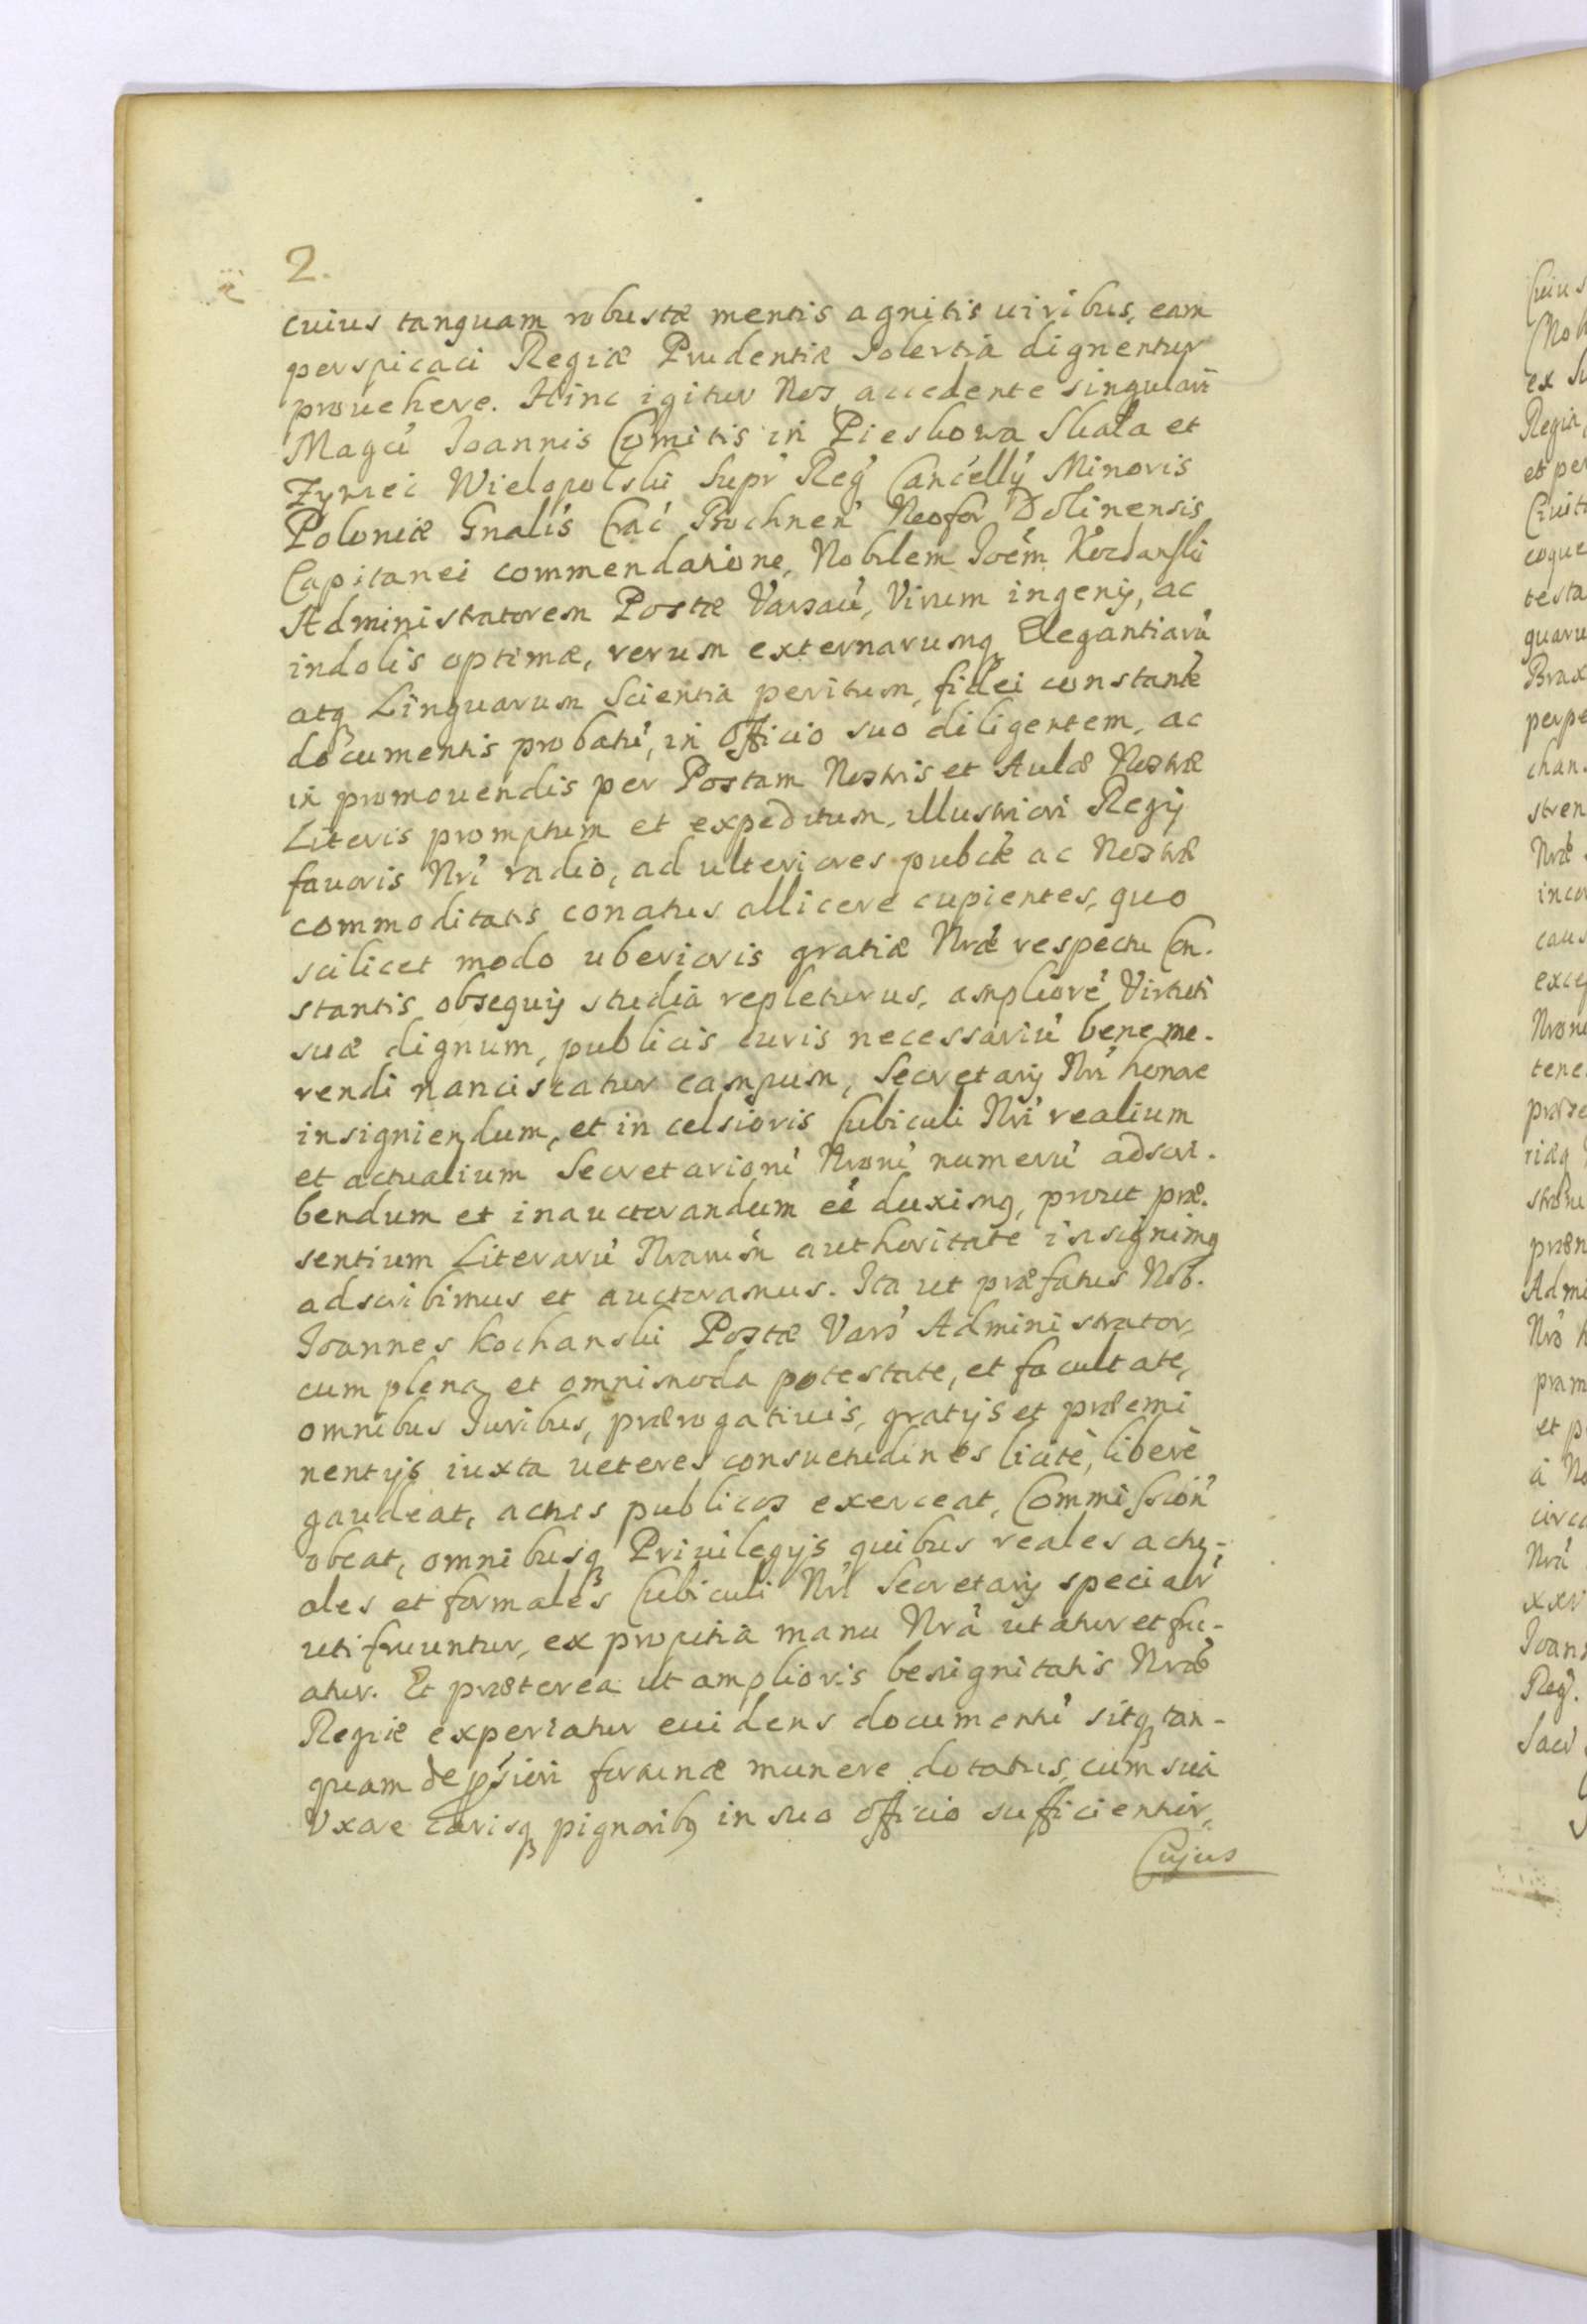 2.
cuius tanquam robustæ mentis agnitis uiribus, eam
perspicaci Regiæ Prudentiæ Solertia dignentur
prouehere. Hinc igitur Nos accedente singulari
Magci Joannis Comitis in Pieskowa Skała et
Zywiec Wielopolski Supr Reg Cancelly Minoris
Poloniæ Gnalis Crac Bochnen Neofor Dolinensis
Capitanei commendatione, Nobilem Joem Kochanski
Administratorem Postæ Varsau, Virum ingenij, ac
indolis optimæ, rerum externarumq Elegantiarú
atq Linguarum Scientia peritum, fidei constante
documentis probatú, in officio suo diligentem, ac
in promouendis per Postam Nostris et Aulæ Nostræ
Literis promptum et expeditum, illustriori Regij
fauoris Nri radio, ad ulteriores pubcæ ac Nostræ
commoditatis conatus allicere cupientes, quo
scilicet modo uberioris gratiæ Nræ respectu Con-
stantis obsequij studia repleturus, ampliorē Virtuti
suæ dignum, publicis curis necessariú bene me-
rendi nanciscatur campum, Secretarij Nri honore
insigniendum, et in celsioris Cubiculi Nri realium
et actualium Secretarioru Nroru numerú adscri-
bendum et inauctorandum eē duximq, prout præ-
sentium Literarú Nrarum authoritate insignimq
adscribimus et auctoramus. Ita ut præfatus Nob.
Joannes Kochanski Postæ Vars Administrator,
cum plena et omnimoda potestate, et facultate,
omnibus Juribus, prærogatiuis, gratijs et præemi
nentijs iuxta ueteres consuetudines licitè, liberè
gaudeat, actus publicos exerceat, Commission
obeat, omnibusq Priuilegijs quibus reales actu-
ales et formales Cubiculi Nri Secretarij specialr
uti fruuntur, ex propitia manu Nra utatur et fru-
atur. Et præterea ut amplioris benignitatis Nræ
Regiæ experiatur euidens documentú sitq tan-
quam de psiori fortunæ munere dotatus, cum sua
Uxore carisq pignoribq in suo officio sufficienter,
Cujus